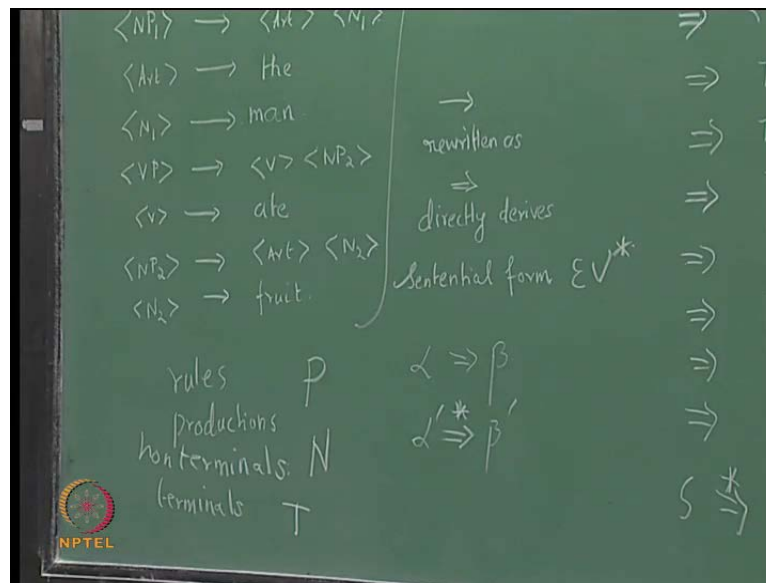 <NP₁> → <Art> <N₁>
<Art> → the
<N₁> → man.
<VP> → <V> <NP₂>
<V> → ate
<NP₂> → <Art> <N₂>
<N₂> → fruit.
rules P
productions
nonterminals: N
terminals T
→
rewritten as
⇒
directly derives
sentential form ∈ V*
α ⇒ β
α' *⇒ β'
⇒
⇒ T
⇒ T
⇒
⇒
⇒
⇒
⇒
S *⇒
NPTEL